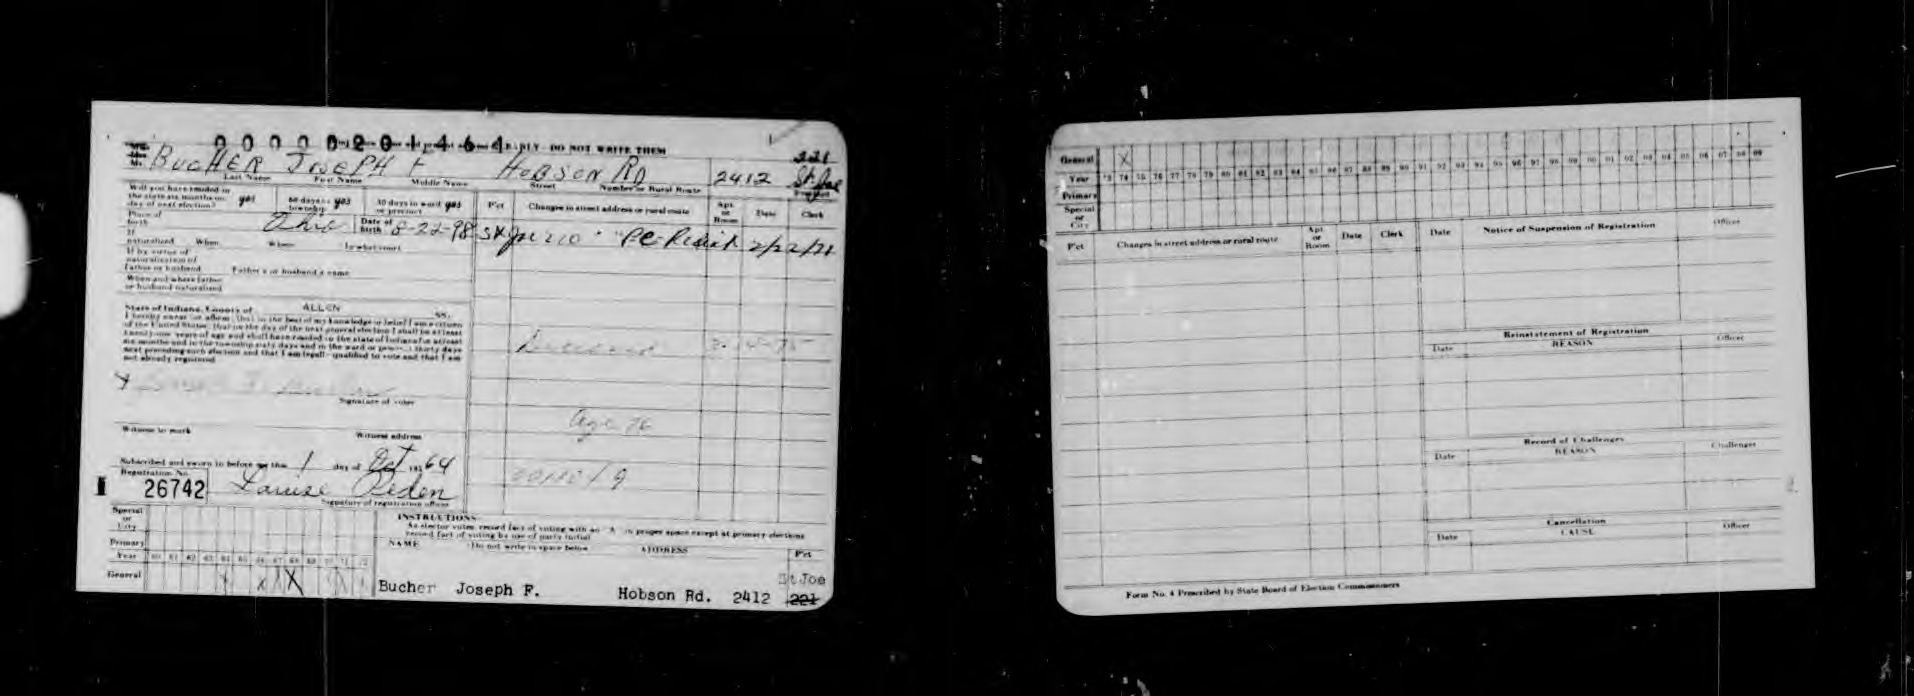 00000201464 EARLY - DO NOT WRITE THEM
BUCHER JOSEPH F HOBSON RD 2412 221 St Joe
Last Name First Name Middle Name Street Number or Rural Route
Will you have resided in the state six months on day of next election? yes 60 days in township yes 30 days in ward or precinct yes
P'ct Changes in street address or rural route Apt. or Room Date Clerk
Place of birth Ohio Date of birth 8-22-98
2/22/71
If naturalized When Where In what court
If by virtue of naturalization of father or husband Father's or husband's name
When and where father or husband naturalized
State of Indiana, County of ALLEN SS.
I hereby swear (or affirm) that to the best of my knowledge or belief I am a citizen
of the United States; that on the day of the next general election I shall be at least
twenty-one years of age and shall have resided in the state of Indiana for at least
six months and in the township sixty days and in the ward or precinct thirty days
next preceding such election and that I am legally qualified to vote and that I am
not already registered.
Deceased
Signature of voter
Age 76
Witness to mark Witness address
Subscribed and sworn to before me this 1 day of Oct 1964
Registration No.
26742 Louise Peden
Signature of registration officer
Special or City
Primary
Year 60 61 62 63 64 65 66 67 68 69 70 71 72
General
INSTRUCTIONS
As elector votes, record fact of voting with an X in proper space except at primary elections
record fact of voting by use of party initial
NAME Do not write in space below ADDRESS P'ct
Bucher Joseph F. Hobson Rd. 2412 St Joe 221
General X
Year 73 74 75 76 77 78 79 80 81 82 83 84 85 86 87 88 89 90 91 92 93 94 95 96 97 98 99 00 01 02 03 04 05 06 07 08 09
Primary
Special or City
P'ct Changes in street address or rural route Apt. or Room Date Clerk
Date Notice of Suspension of Registration Officer
Reinstatement of Registration
Date REASON Officer
Record of Challenges
Date REASON Challenger
Cancellation
Date CAUSE Officer
Form No. 4 Prescribed by State Board of Election Commissioners